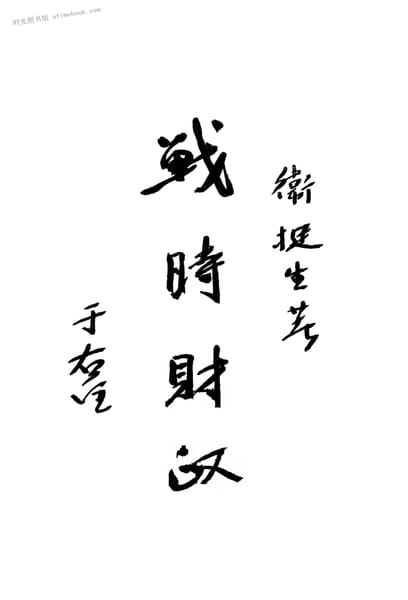 时光图书馆 atimebook.com
衛挺生著
戰時財政
于右任